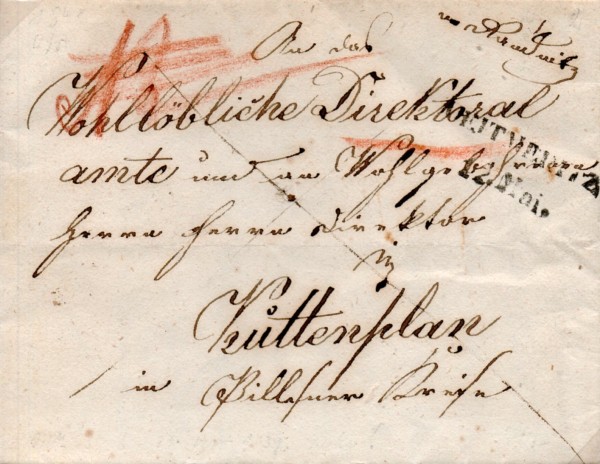 An das
Wohllöbliche Direktoral
amte und an Wohlgebohrenen
Herrn Herrn Direktor
in
Kuttenplan
im Pillsner Kreise
12. Mai.